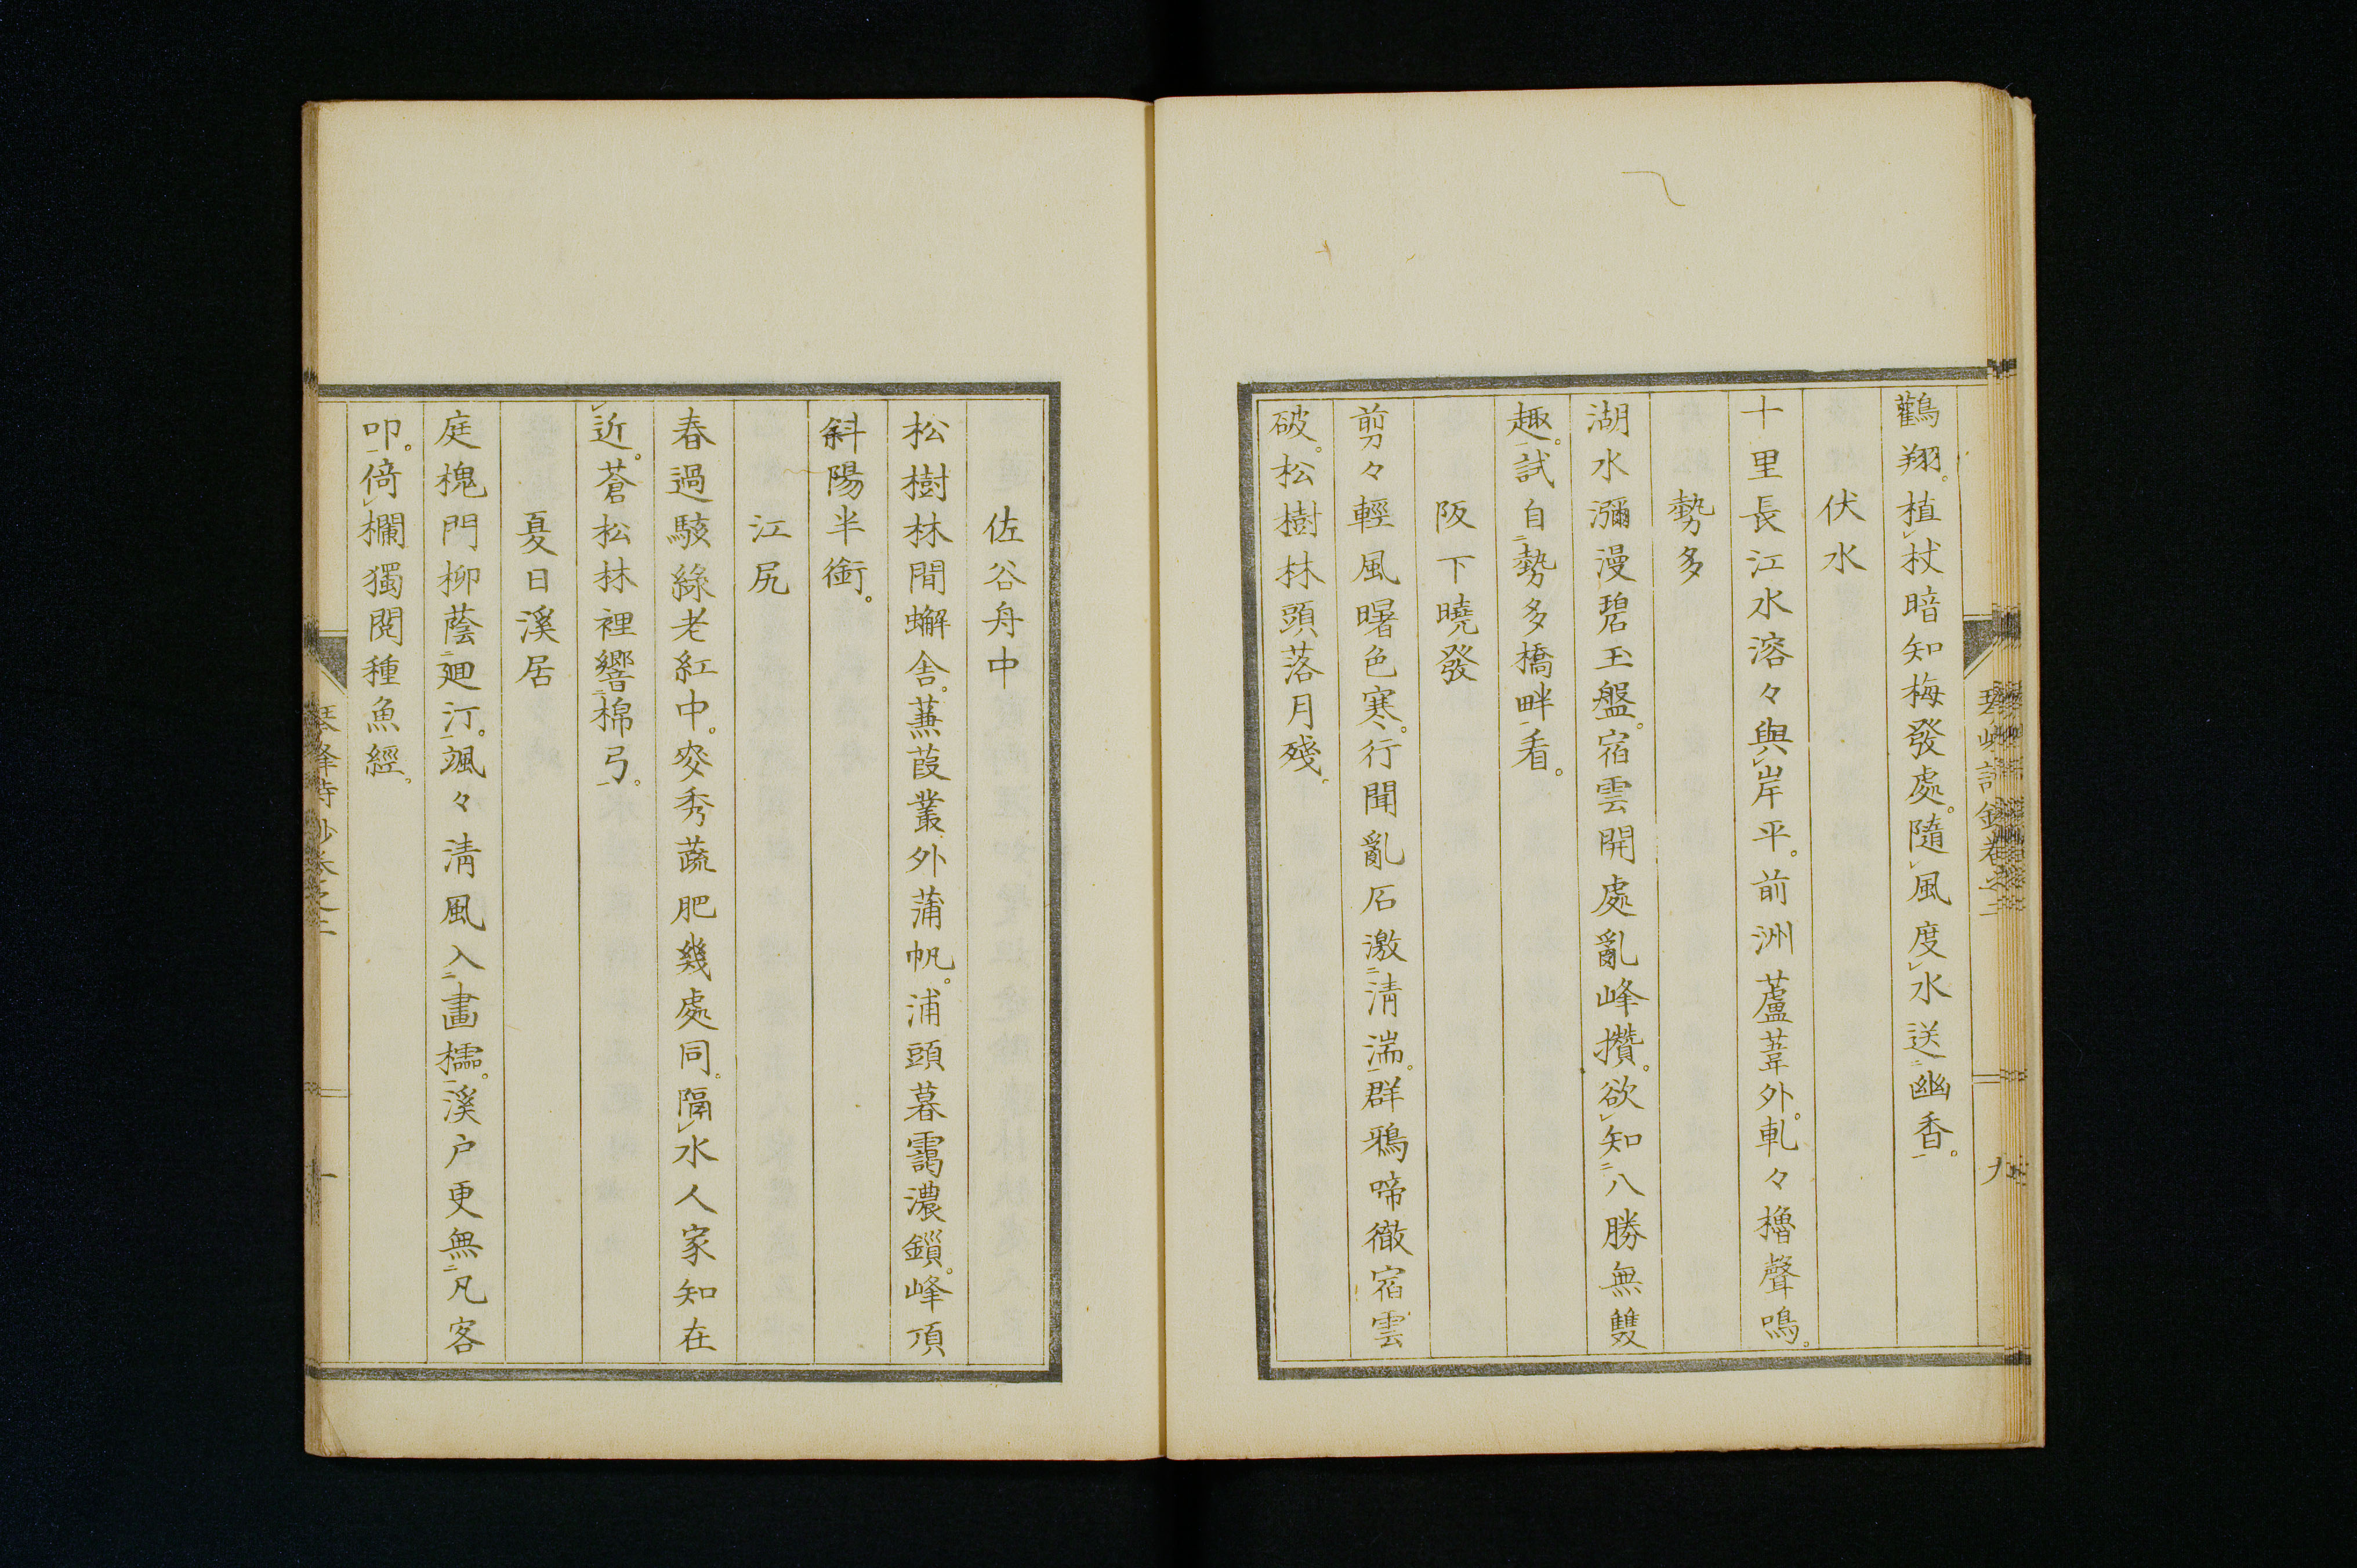 鸛翔。植杖暗知梅發處。隨風度水送幽香。
伏水
十里長江水溶々與岸平。前洲蘆葦外。軋々櫓聲鳴。
勢多
湖水瀰漫碧玉盤。宿雲開處亂峰攢。欲知八勝無雙
趣。試自勢多橋畔看。
阪下曉發
剪々輕風曙色寒。行聞亂石激清湍。群鴉啼徹宿雲
破。松樹林頭落月殘。
佐谷舟中
松樹林間蠏舎。蒹葭叢外蒲帆。浦頭暮靄濃鎻。峰頂
斜陽半銜。
江尻
春過駭綠老紅中。麥秀蔬肥幾處同。隔水人家知在
近。蒼松林裡響棉弓。
夏日溪居
庭槐門柳蔭廻汀。颯々清風入畫櫺。溪户更無凡客
叩。倚欄獨閲種魚經。
琴峰詩鈔卷之二
十